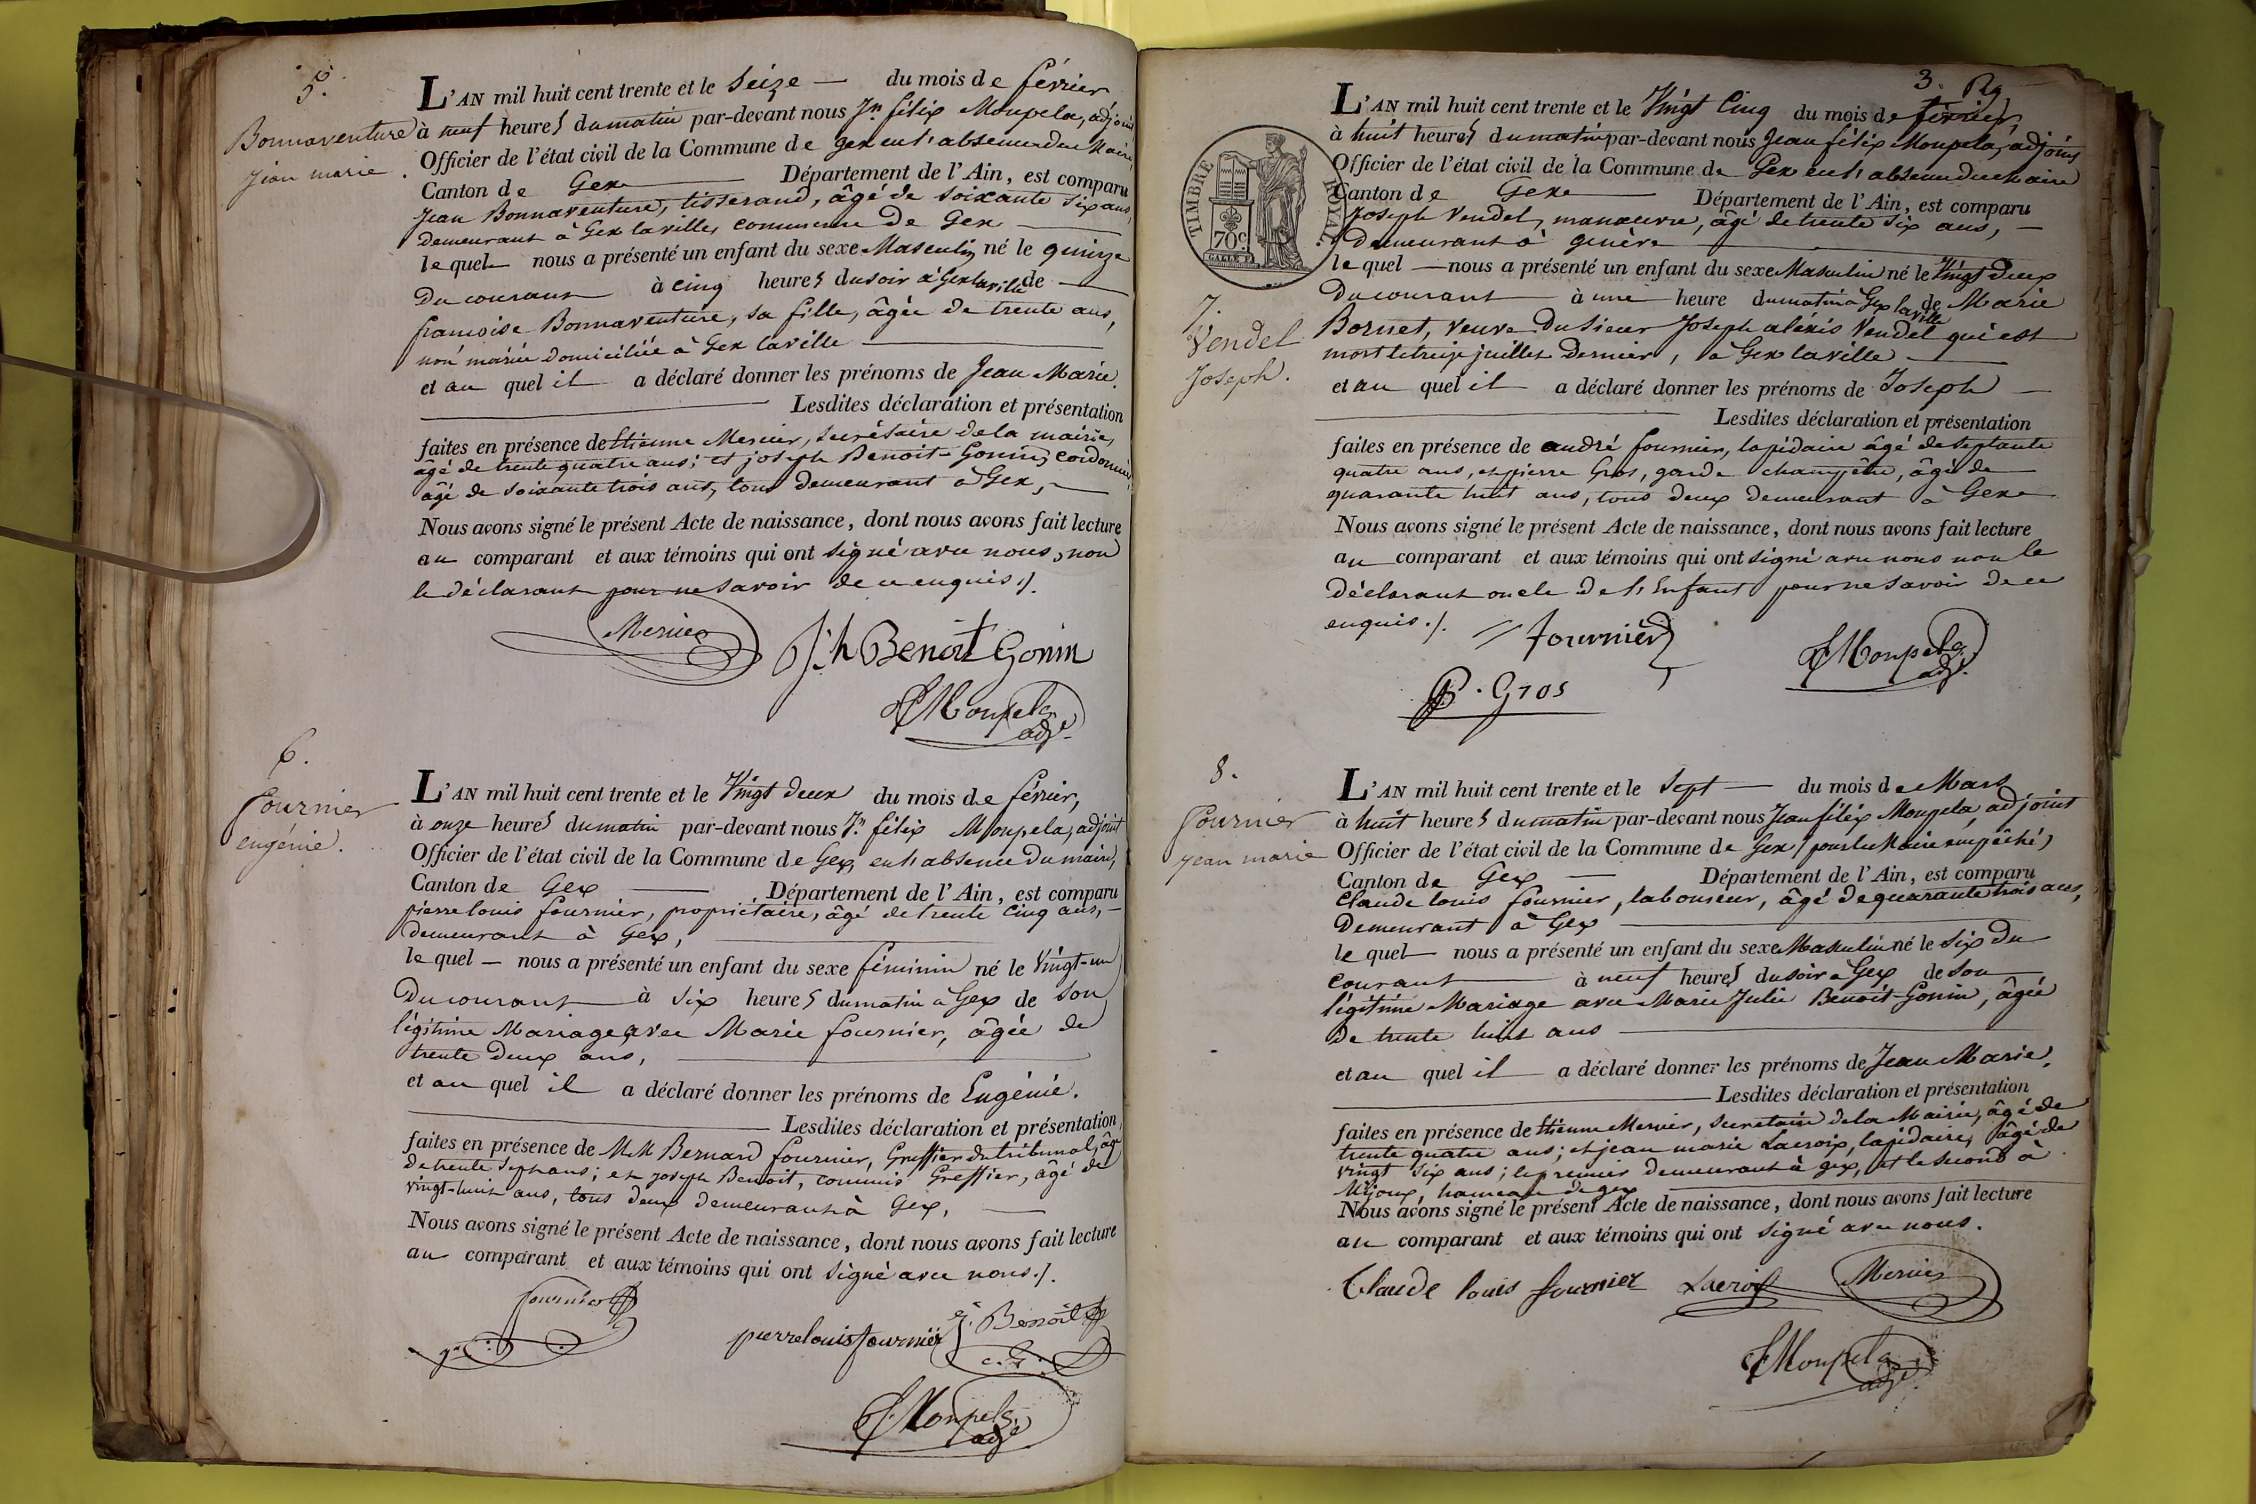 5.
Bonnaventure
jean marie.
L'AN mil huit cent trente et le Seize — du mois de février
à neuf heures du matin par-devant nous Jn félix Moupela, adjoint
Officier de l'état civil de la Commune de gex en l'absence du Maire,
Canton de Gex Département de l'Ain, est comparu
Jean Bonnaventure, tisserand, âgé de soixante six ans,
demeurant à Gex laville, commune de Gex
lequel nous a présenté un enfant du sexe Masculin né le quinze
Du courant à cinq heures du soir à Gex laville de
françoise Bonnaventure, sa fille, âgée de trente ans,
non mariée domiciliée à Gex laville
et au quel il a déclaré donner les prénoms de Jean Marie.
Lesdites déclaration et présentation
faites en présence de Etienne Mercier, secrétaire de la mairie,
âgé de trente quatre ans; et joseph Benoit-Gonin, cordonnier,
âgé de soixante trois ans, tous demeurant à Gex,
Nous avons signé le présent Acte de naissance, dont nous avons fait lecture
au comparant et aux témoins qui ont signé avec nous, non
le déclarant pour ne savoir de ce enquis ./.
Mercier
Jh Benoît Gonin
Moupela
adj.
6.
fournier
eugénie.
L'AN mil huit cent trente et le Vingt deux du mois de février,
à onze heures du matin par-devant nous Jn félix Moupela, adjoint
Officier de l'état civil de la Commune de Gex, en l'absence du maire,
Canton de Gex Département de l'Ain, est comparu
pierre louis fournier, propriétaire, âgé de trente cinq ans,
demeurant à Gex,
lequel — nous a présenté un enfant du sexe féminin né le Vingt-un
Du courant à six heures du matin à Gex de son
légitime Mariage avec Marie fournier, âgée de
trente deux ans,
et au quel il a déclaré donner les prénoms de Eugénie.
Lesdites déclaration et présentation
faites en présence de MM Bernard fournier, Greffier du tribunal, âgé
de trente sept ans; et joseph Benoit, commis Greffier, âgé de
vingt-huit ans, tous deux demeurant à Gex,
Nous avons signé le présent Acte de naissance, dont nous avons fait lecture
au comparant et aux témoins qui ont signé avec nous ./.
fournier
pierre louis fournier
j. Benoit
c. G.
Moupela
adj.
3.
TIMBRE ROYAL.
70c.
GALLE F.
7.
Vendel
Joseph.
L'AN mil huit cent trente et le Vingt Cinq du mois de février
à huit heures du matin par-devant nous Jean félix Moupela, adjoint
Officier de l'état civil de la Commune de Gex en l'absence du Maire
Canton de Gex Département de l'Ain, est comparu
Joseph Vendel, manœuvre, âgé de trente six ans,
Demeurant à genève
lequel — nous a présenté un enfant du sexe Masculin né le Vingt deux
Du courant à une heure du matin à Gex laville de Marie
Bornet, veuve du sieur Joseph aléxis Vendel qui est
mort le treize juillet dernier, à Gex laville
et au quel il a déclaré donner les prénoms de Joseph
Lesdites déclaration et présentation
faites en présence de andré fournier, lapidaire âgé de septante
quatre ans, et pierre Gros, garde champêtre, âgé de
quarante huit ans, tous deux demeurant à Gex
Nous avons signé le présent Acte de naissance, dont nous avons fait lecture
au comparant et aux témoins qui ont signé avec nous non le
Déclarant oncle de l'Enfant pour ne savoir de ce
enquis ./.
fournier
P. Gros
Moupela
adj.
8.
fournier
jean marie
L'AN mil huit cent trente et le Sept du mois de Mars
à huit heures du matin par-devant nous Jean félix Moupela, adjoint
Officier de l'état civil de la Commune de Gex (pour le Maire empêché)
Canton de Gex Département de l'Ain, est comparu
Claude louis fournier, laboureur, âgé de quarante trois ans,
Demeurant à Gex
lequel nous a présenté un enfant du sexe Masculin né le six du
courant à neuf heures du soir à Gex de son
légitime Mariage avec Marie Julie Benoit-Gonin, âgée
De trente huit ans
et au quel il a déclaré donner les prénoms de Jean Marie.
Lesdites déclaration et présentation
faites en présence de Etienne Mercier, secrétaire de la Mairie, âgé de
trente quatre ans; et jean marie Lacroix, lapidaire, âgé de
vingt six ans; le premier demeurant à gex, et le second à
Mijoux, hameau de gex
Nous avons signé le présent Acte de naissance, dont nous avons fait lecture
au comparant et aux témoins qui ont signé avec nous.
Claude louis fournier
Lacroix
Mercier
Moupela
adj.